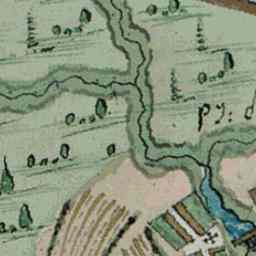 py: d